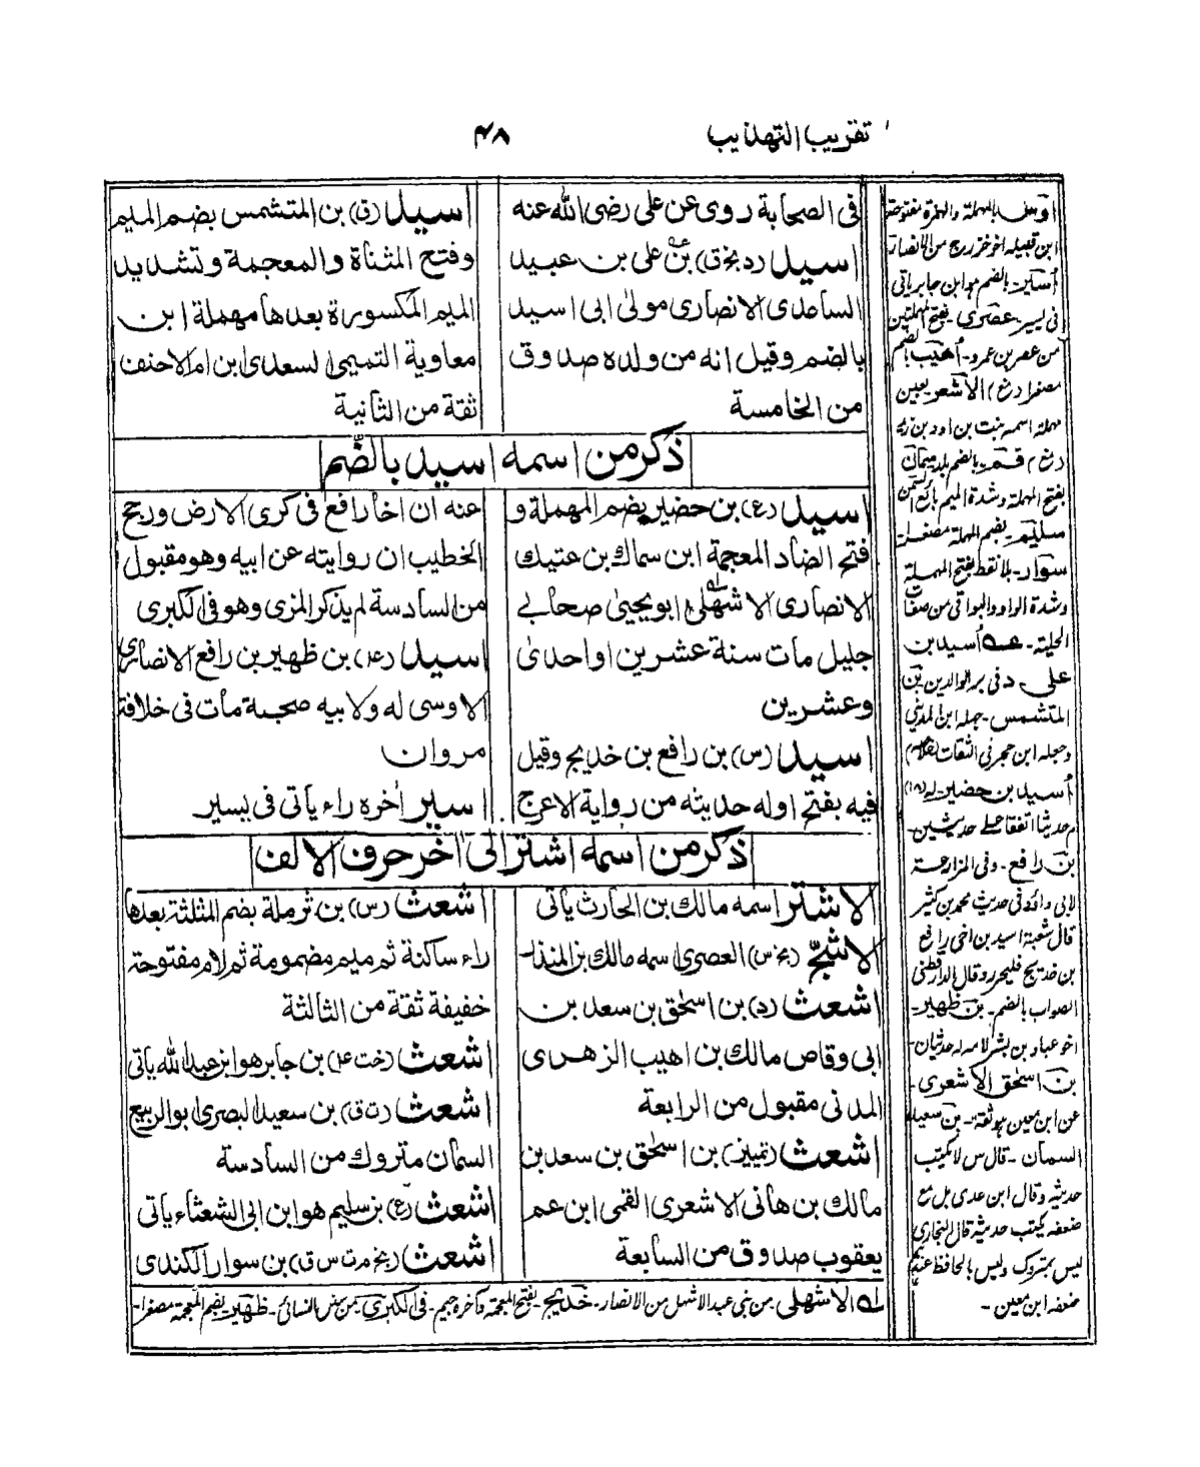 تقريب التهذيب
٤٨
فى الصحابة روى عن على رضى الله عنه
اسيد (د بخ ق) بن على بن عبيد
الساعدى الانصارى مولى ابى اسيد
بالضم وقيل انه من ولده صدوق
من الخامسة
اسيد (ق) بن المتشمس بضم الميم
وفتح المثناة والمعجمة وتشديد
الميم المكسورة بعدها مهملة ابن
معاوية التميمى السعدى ابن ام الاحنف
ثقة من الثانية
ذكر من اسمه اسيد بالضم
اسيد (ع) بن حضير بضم المهملة و
فتح الضاد المعجمة ابن سماك بن عتيك
الانصارى الاشهلى له ابو يحيىٰ صحابے
جليل مات سنة عشرين او احدى
وعشرين
اسيد (س) بن رافع بن خديج وقيل
فيه بفتح اوله حديثه من رواية الاعرج
عنه ان اخا رافع فى كرى الارض ورجح
الخطيب ان روايته عن ابيه وهو مقبول
من السادسة لم يذكر المزى وهو فى الكبرى
اسيد (ع۴) بن ظهير بن رافع الانصارى
الاوسى له ولابيه صحبة مات فى خلافة
مروان
اسير اخره راء ياتى فى يسير
ذكر من اسمه اشتر الى اخر حرف الالف
الاشتر اسمه مالك بن الحارث ياتى
الاشجّ (بخ س) العصرى اسمه مالك بن المنذر
اشعث (د) بن اسحٰق بن سعد بن
ابى وقاص مالك بن اهيب الزهرى
المدنى مقبول من الرابعة
اشعث (تمييز) بن اسحٰق بن سعد بن
مالك بن هانى الاشعرى القمى ابن عم
يعقوب صدوق من السابعة
اشعث (س) بن ثرملة بضم المثلثة بعدها
راء ساكنة ثم ميم مضمومة ثم لام مفتوحة
خفيفة ثقة من الثالثة
اشعث (خت ۴) بن جابر هو ابن عبد الله ياتى
اشعث (ت ق) بن سعيد البصرى ابو الربيع
السمان متروك من السادسة
اشعث (ع) بن سليم هو ابن ابى الشعثاء ياتى
اشعث (بخ م ت س ق) بن سوار الكندى
له الاشهلى من بنى عبد الاشهل من الانصار۔ خديج۔ بفتح المعجمة وآخره جيم۔ فى الكبرى۔ من سنن النسائى۔ ظهير۔ بضم المعجمة مصغرا۔
اوس بالمهملة والهمزة مفتوحة
ابن قبيله اخو خزرج من الانصار
أسير۔ بالضم هو ابن جابر ياتى
فى يسير۔ عصرى۔ بفتح المهملتين
من عصر بن عمرو۔ أهيب بالضم
مصغرا (رخ) الاشعر بعين
مهملة اسمه نبت بن ادد بن زيد
بفتح المهملة وشدة الميم بائع السمن
سليم۔ بضم المهملة مصغرا۔
سوار۔ بلا نقط بفتح المهملة
وشدة الواو
أسيد بن
على
المتشمس۔ جهله ابن المدينى
وجعله ابن حجر فى الثقات
أسيد بن حضير۔ له (۱۸)
حديثا اتفقا على حديثين۔
بن رافع۔ وفى المزارعة
لابى داؤد فى حديث محمد بن كثير
قال شعبة اسيد بن اخى رافع
بن خديج فليحرر وقال الدارقطنى
الصواب بالضم۔ بن ظهير۔
اخو عباد بن بشر لامه له حديثان۔
بن اسحٰق الاشعرى۔
عن ابن معين يوثقه۔ بن سعيد
السمان۔ قال س لا يكتب
حديثه وقال ابن عدى بل مع
ضعفه يكتب حديثه قال البخارى
ليس بمتروك وليس بالحافظ عندهم
ضعفه ابن معين۔